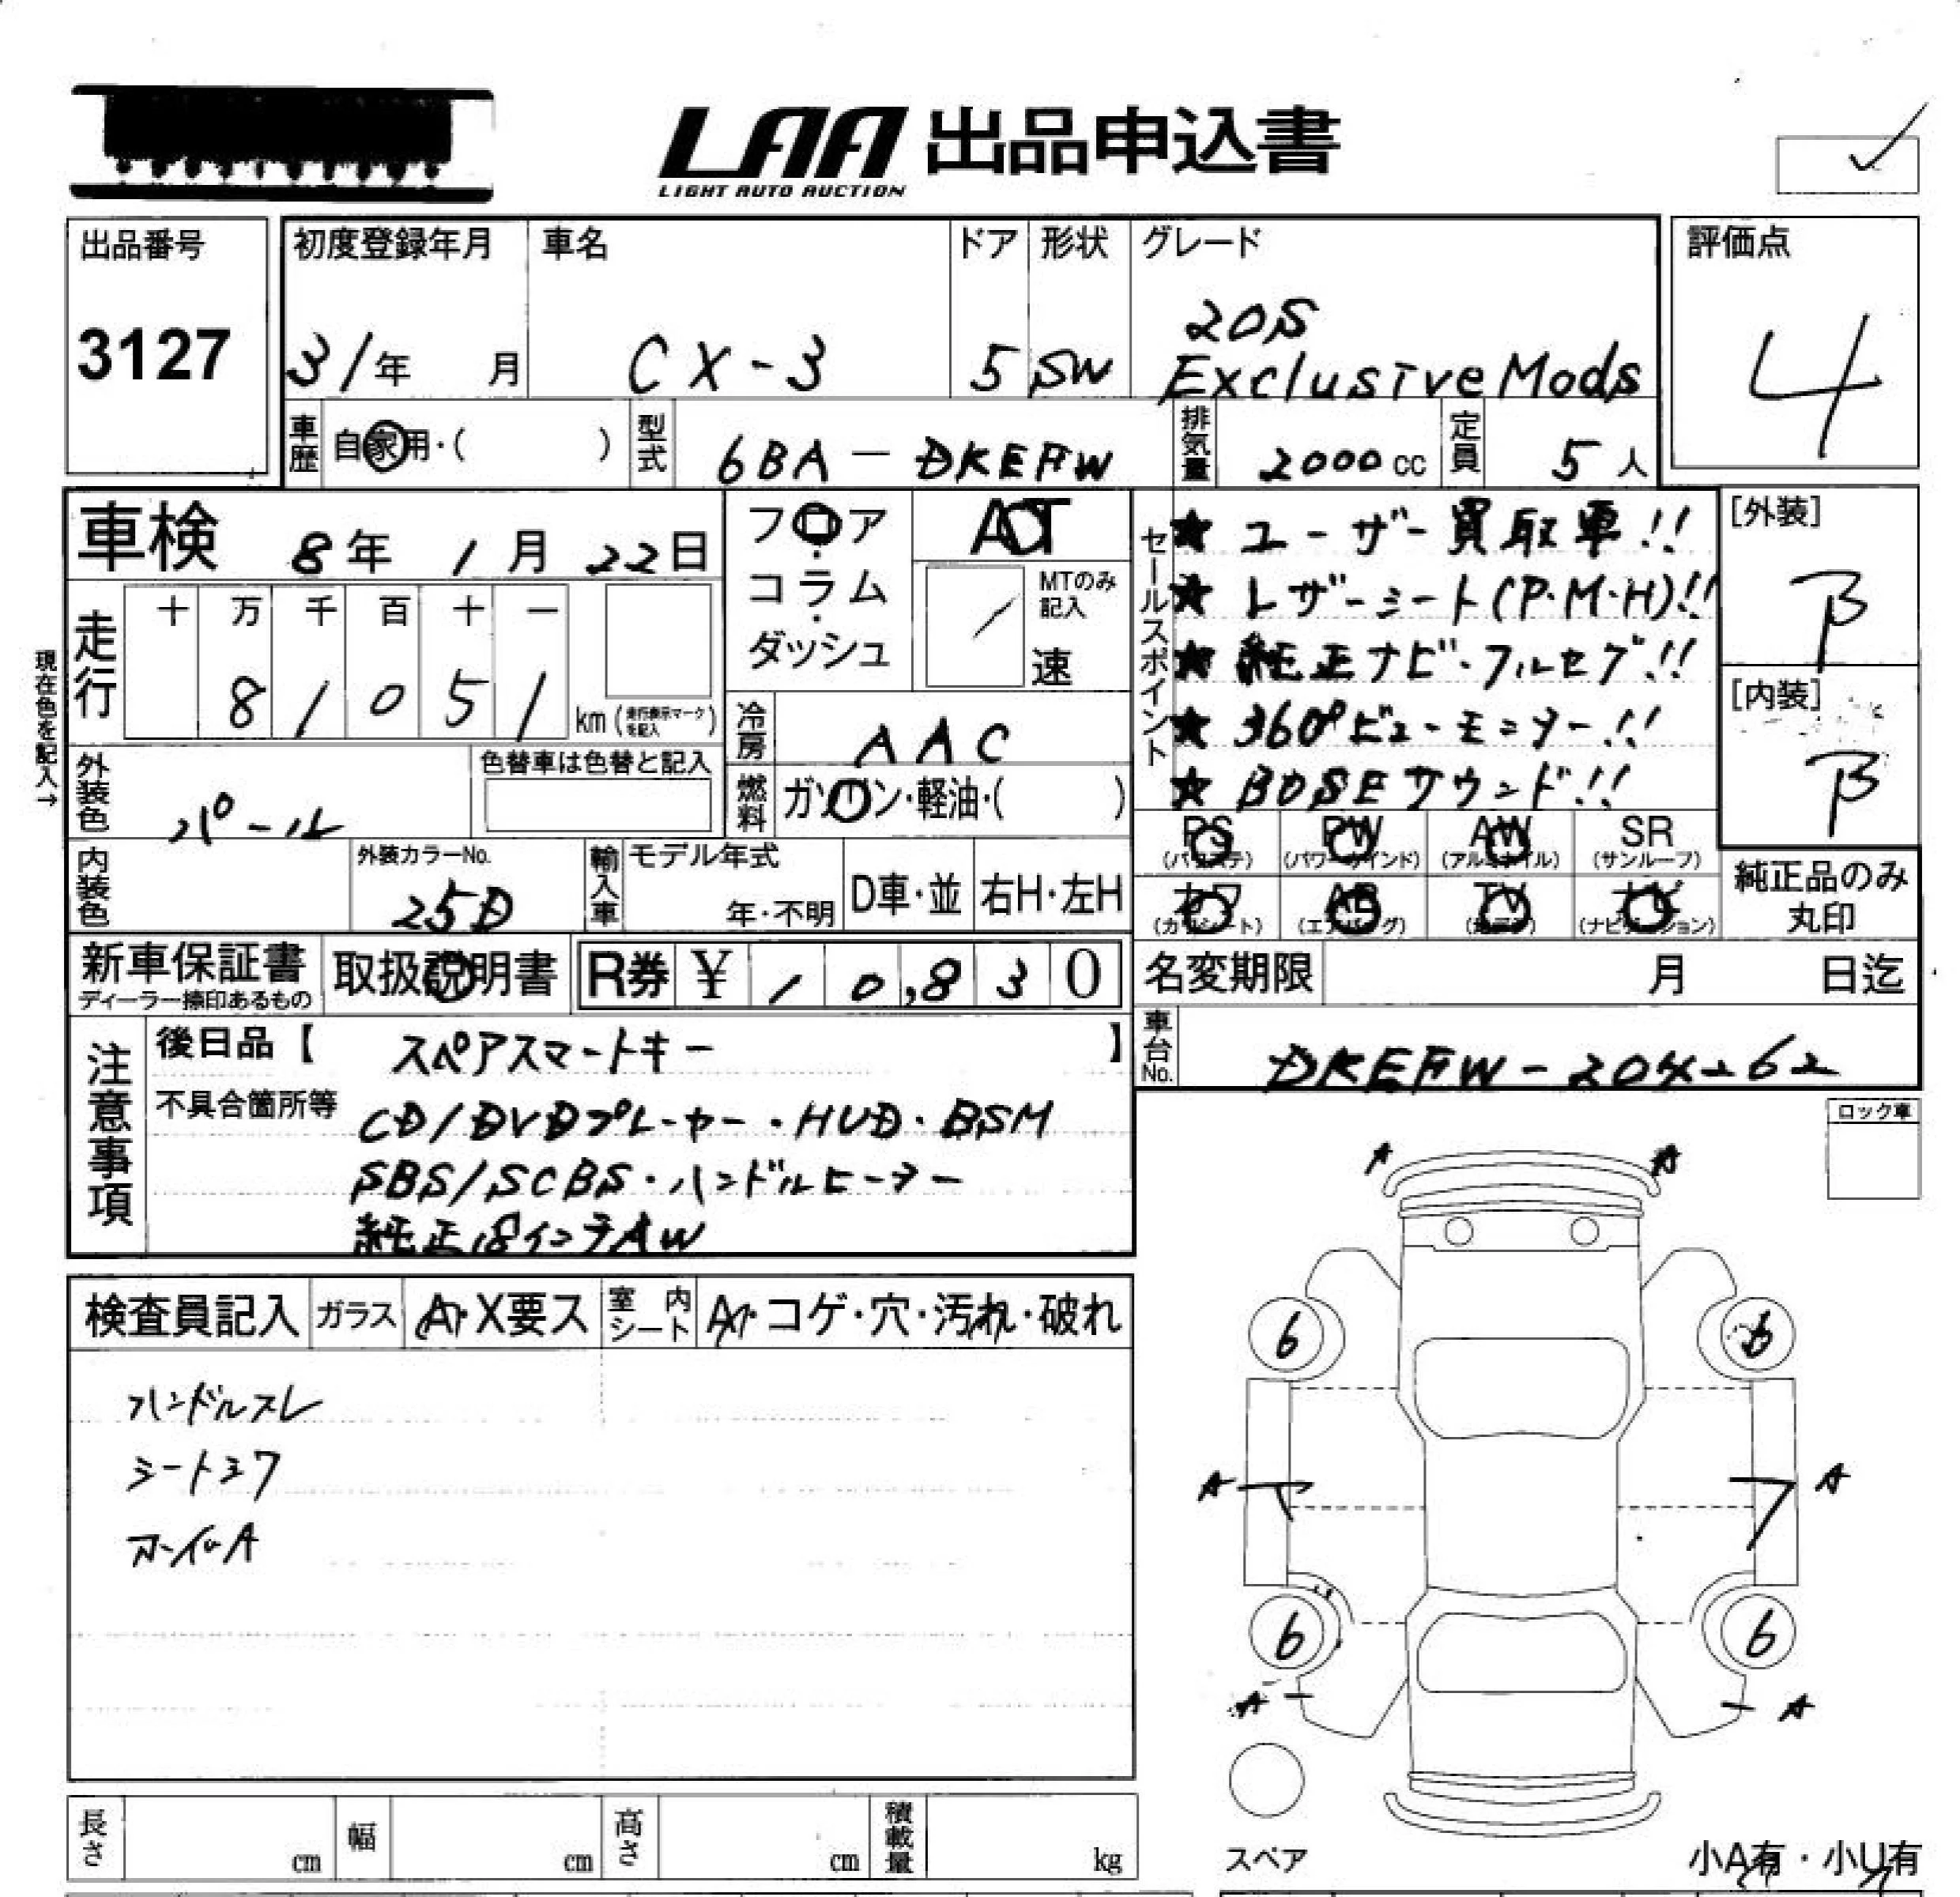 LAA 出品申込書
LIGHT AUTO AUCTION
出品番号
3127
初度登録年月
31年 月
車名
CX-3
ドア
5
形状
SW
グレード
20S
Exclusive Mods
評価点
4
車歴
自家用・( )
型式
6BA-DKEFW
排気量
2000cc
定員
5人
車検 8年 1月 22日
フロア・
コラム・
ダッシュ
AT
MTのみ
記入
速
セールスポイント
★ユーザー買取車!!
★レザーシート(P・M・H)!!
★純正ナビ・フルセグ!!
★360°ビューモニター!!
★BOSEサウンド!!
[外装]
B
[内装]
B
現在色を記入→
走行
十 万 千 百 十 一
8 1 0 5 1
km (走行表示マークを記入)
冷房
AAC
外装色
パール
色替車は色替と記入
燃料
ガソリン・軽油・( )
PS
(パワステ)
PW
(パワーウインド)
AW
(アルミホイル)
SR
(サンルーフ)
カワ
(カワシート)
AB
(エアバッグ)
TV
ナビ
(ナビゲーション)
純正品のみ
丸印
内装色
外装カラーNo.
25D
輸入車
モデル年式
年・不明
D車・並
右H・左H
新車保証書
ディーラー捺印あるもの
取扱説明書
R券 ¥ 10,830
名変期限 月 日迄
注意事項
後日品【 スペアスマートキー 】
不具合箇所等
CD/DVDプレーヤー・HUD・BSM
SBS/SCBS・ハンドルヒーター
純正18インチAW
車台No.
ロック車
検査員記入
ガラス
A・X要ス
室内シート
A・コゲ・穴・汚れ・破れ
ハンドルスレ
シートヨワ
A A
6 6
A A
6 6
A A
スペア
小A有・小U有
長さ cm
幅 cm
高さ cm
積載量 kg